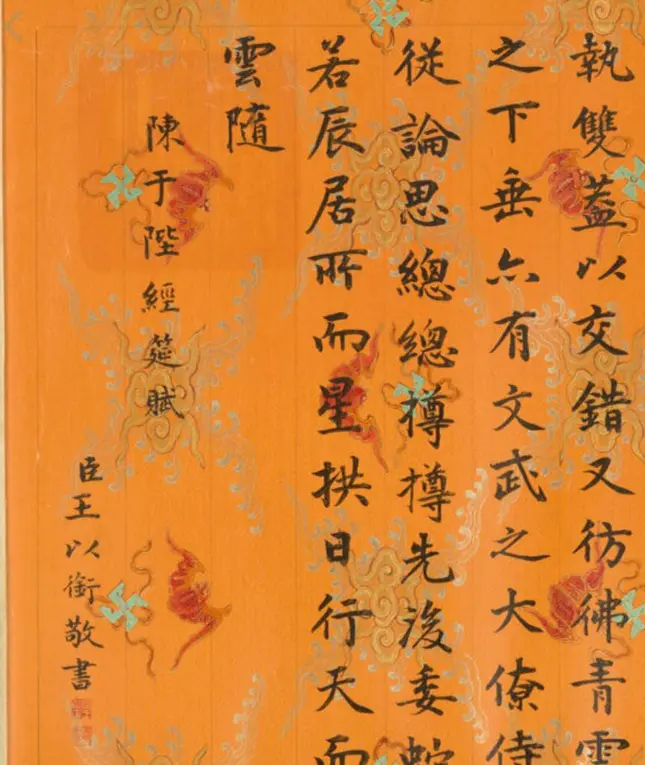 執雙葢以交錯又彷彿青雲
之下垂亦有文武之大僚侍
從論思總總樽樽先後委蛇
若辰居所而星拱日行天而
雲隨
陳于陛經筵賦
臣王以銜敬書